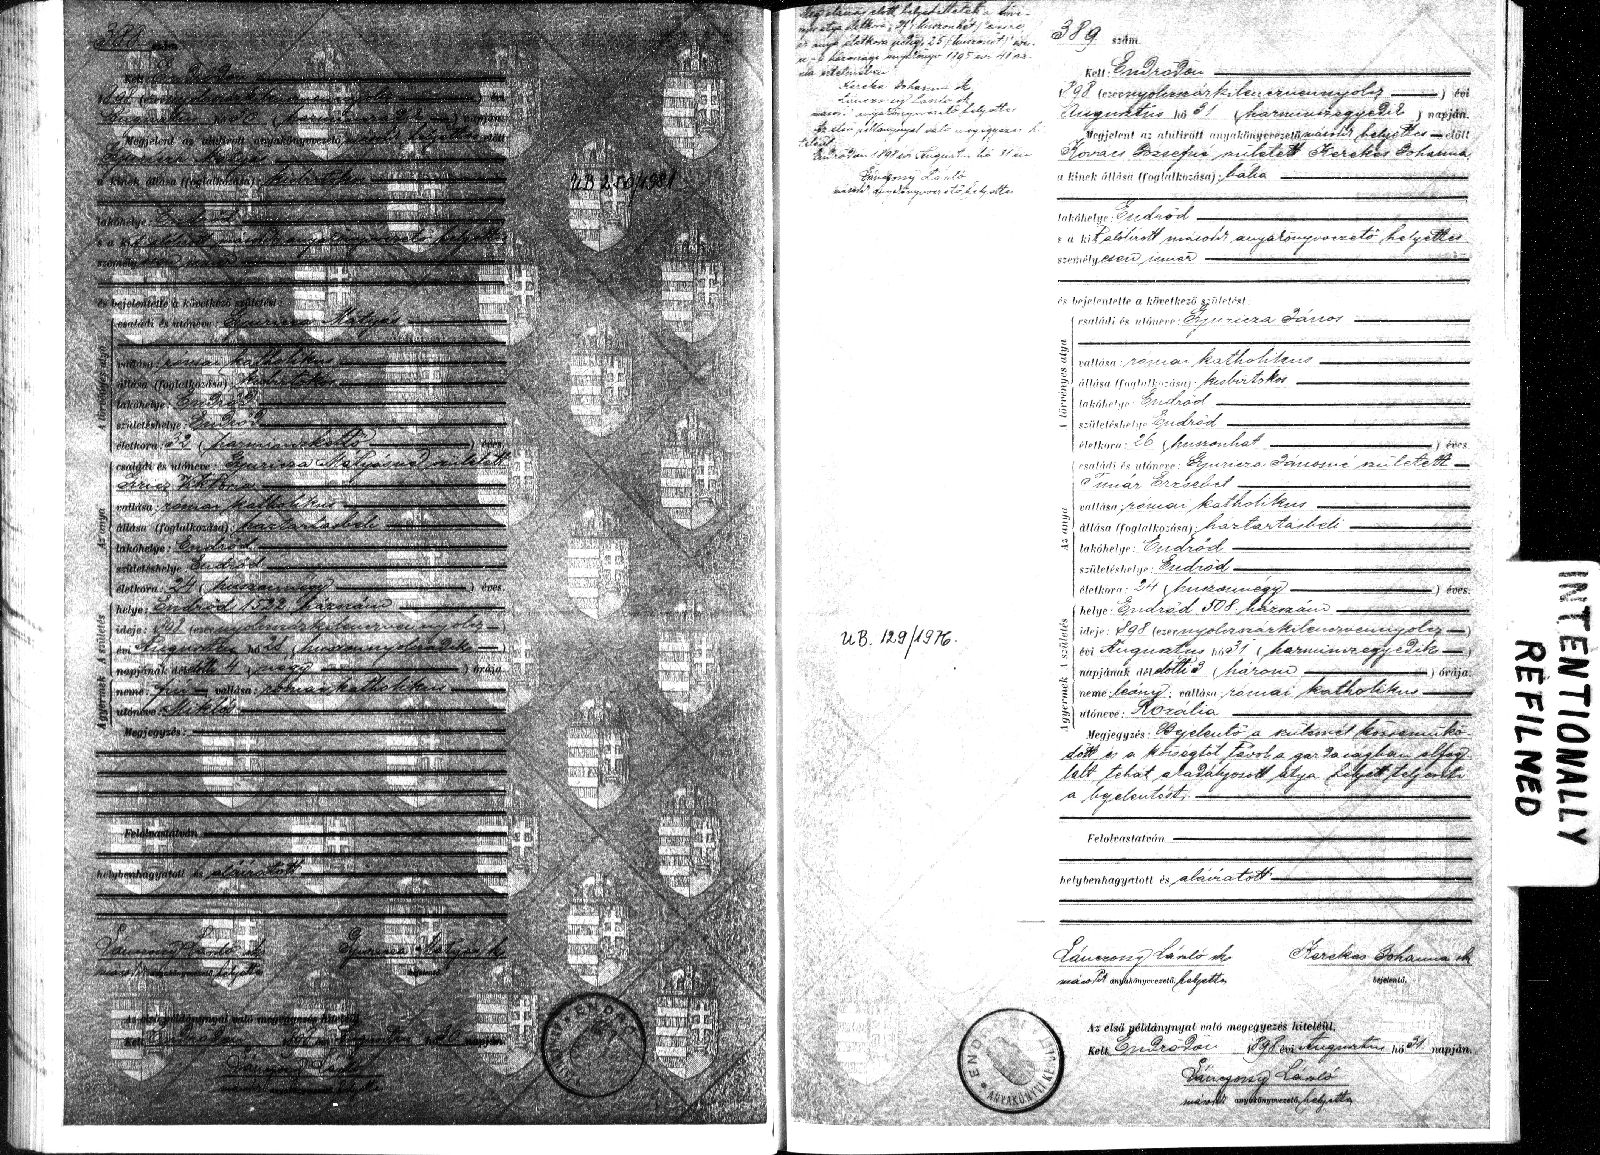 388 szám.
Kelt: Endrődön
1898 (ezernyolcszázkilencvennyolc) évi
Augusztus hó 30 (harminczadik) napján.
Megjelent az alulirott anyakönyvvezető, másodi helyettes előtt
Gyuricza Mátyás
a kinek állása (foglalkozása): kubikos
lakóhelye: Endrőd
s a kit alólirott másodi anyakönyvvezető helyettes
személyesen ismer
és bejelentette a következő születést:
A törvényes atya
családi és utóneve: Gyuricza Mátyás
vallása: római katholikus
állása (foglalkozása): kubikos
lakóhelye: Endrőd
születéshelye: Endrőd
életkora: 32 (harminczkettő) éves.
Az anya
családi és utóneve: Gyuricza Mátyásné született
Viktória
vallása: római katholikus
állása (foglalkozása): háztartásbeli
lakóhelye: Endrőd
születéshelye: Endrőd
életkora: 24 (huszonnégy) éves.
A születés
helye: Endrőd 1522 házszám
ideje: 1898 (ezernyolczszázkilenczvennyolcz)
évi Augusztus hó 28 (huszonnyolczadik)
napjának délelőtti 4 (négy) órája.
A gyermek
neme: fiú vallása: római katholikus
utóneve: Miklós
Megjegyzés:
Felolvastatván,
helybenhagyatott és aláiratott
Lánczossy László sk
másodi anyakönyvvezető helyettes
Gyuricza Mátyás sk
bejelentő.
Az első példánynyal való megegyezés hiteléül.
Kelt Endrődön 1898 évi Augusztus hó 30 napján.
Lánczossy László
másodi anyakönyvvezető helyettes
UB 250/1981
életkora 27 (huszonhét) éves
az anya életkora pedig 25 (huszonöt) éves
Kerekes Johanna sk
Lánczossy László sk
másodi anyakönyvvezető helyettes
Az első példánnyal való megegyezés
Endrődön 1898 évi Augusztus hó 31 én
Lánczossy László
másodi anyakönyvvezető helyettes
UB. 129/1976.
389 szám.
Kelt: Endrődön
1898 (ezernyolczszázkilenczvennyolcz) évi
Augusztus hó 31 (harminczegyedik) napján.
Megjelent az alulirott anyakönyvvezető másodi helyettes előtt
Kovács Józsefné született Kerekes Johanna
a kinek állása (foglalkozása): bába
lakóhelye: Endrőd
s a kit alólirott másodi anyakönyvvezető helyettes
személyesen ismer
és bejelentette a következő születést:
A törvényes atya
családi és utóneve: Gyuricza János
vallása: római katholikus
állása (foglalkozása): kubikos
lakóhelye: Endrőd
születéshelye: Endrőd
életkora: 26 (huszonhat) éves
Az anya
családi és utóneve: Gyuricza Jánosné született
Tímár Erzsébet
vallása: római katholikus
állása (foglalkozása): háztartásbeli
lakóhelye: Endrőd
születéshelye: Endrőd
életkora: 24 (huszonnégy) éves.
A születés
helye: Endrőd 508 házszám
ideje: 1898 (ezernyolczszázkilenczvennyolcz)
évi Augusztus hó 31 (harminczegyedik)
napjának délelőtti 3 (három) órája.
A gyermek
neme: leány; vallása: római katholikus
utóneve: Rozália
Megjegyzés: Bejelentő a szülésnél közreműkö-
dött s a községtől távol a gazdaságban elfog-
lalt tehát akadályozott atya helyett teljesíti
a bejelentést.
Felolvastatván,
helybenhagyatott és aláiratott
Lánczossy László sk
másodi anyakönyvvezető helyettes
Kerekes Johanna sk
bejelentő.
Az első példánynyal való megegyezés hiteléül.
Kelt Endrődön 1898 évi Augusztus hó 31 napján.
Lánczossy László
másodi anyakönyvvezető helyettes
INTENTIONALLY
REFILMED